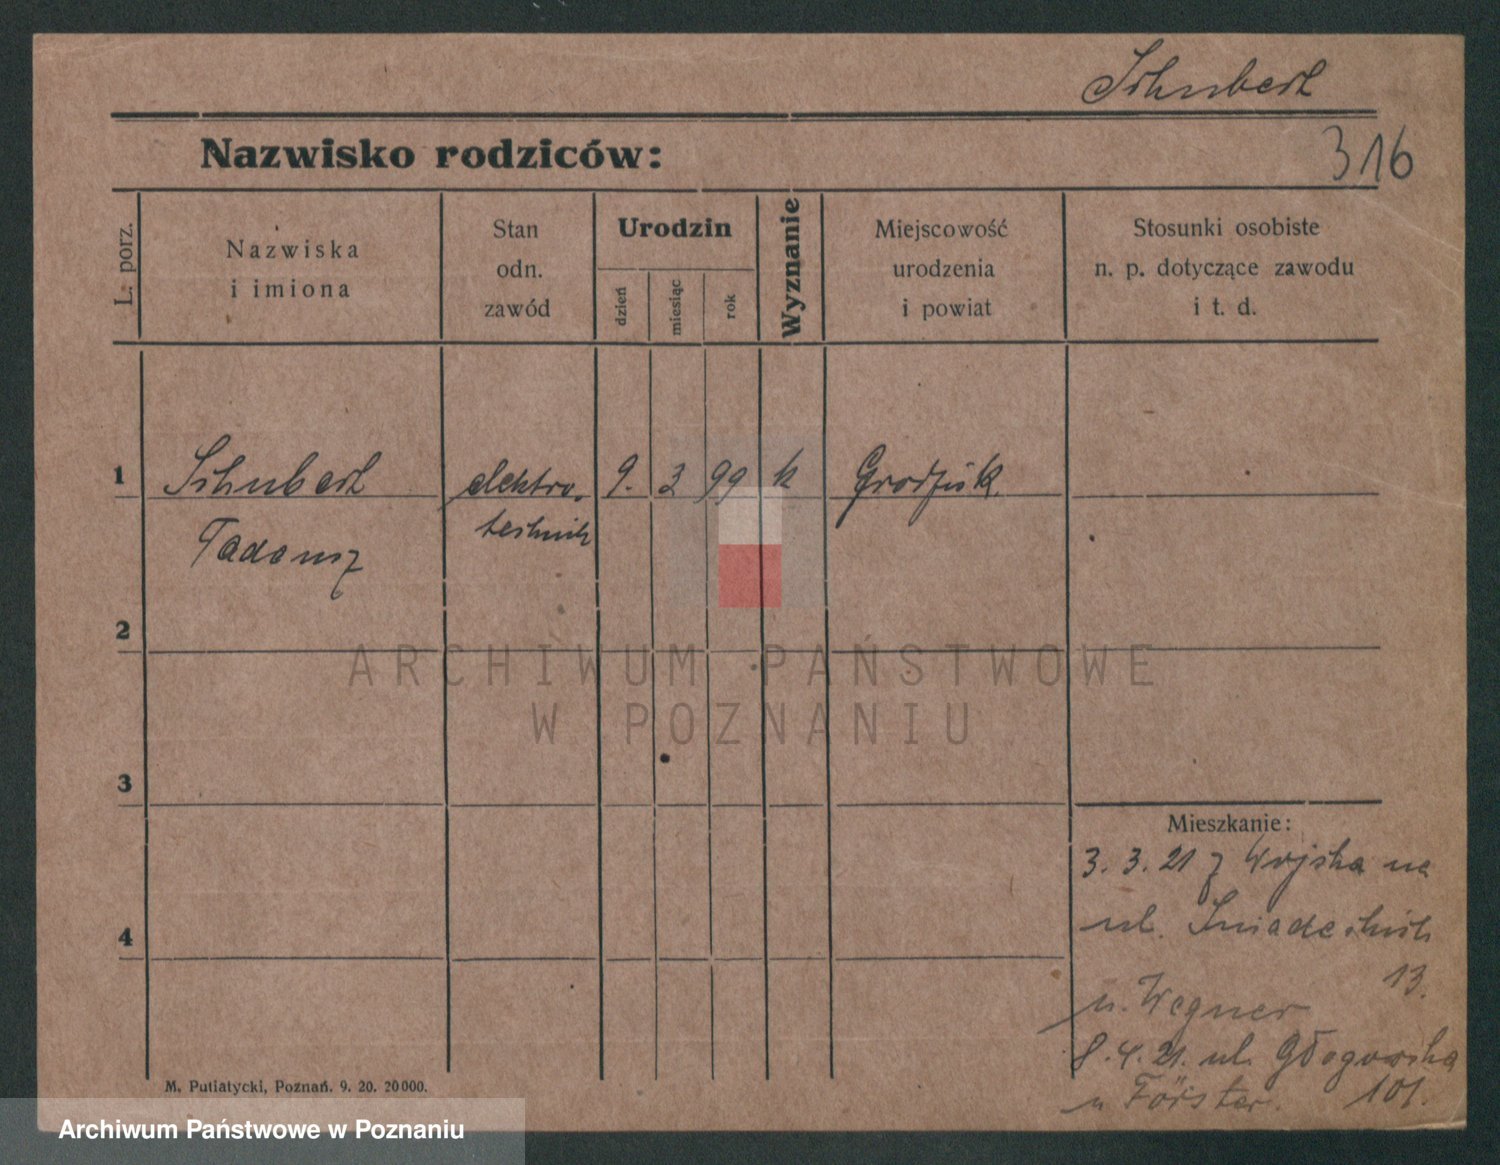 Schubert
Nazwisko rodziców:
316
L. porz.
Nazwiska
i imiona
Stan
odn.
zawód
Urodzin
dzień
miesiąc
rok
Wyznanie
Miejscowość
urodzenia
i powiat
Stosunki osobiste
n. p. dotyczące zawodu
i t. d.
1 Schubert elektro- 9. 3 99 k Grodzisk
Tadeusz technik
2
3
4
Mieszkanie:
3. 3. 21 z Wojska na
ul. Śniadeckich
13.
u. Wegner
8. 4. 21. ul. Głogowska
u Förster. 101.
M. Putiatycki, Poznań. 9. 20. 20 000.
ARCHIWUM PAŃSTWOWE
W POZNANIU
Archiwum Państwowe w Poznaniu